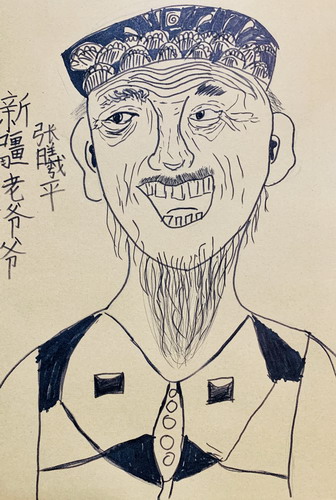 新疆老爷爷
张曦平